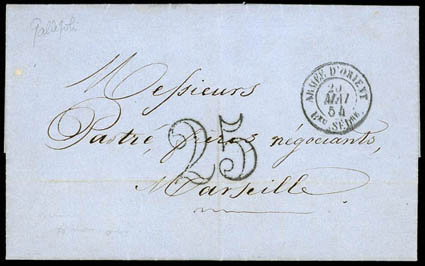 Gallipoli
Messieurs
Pastré frères négociants,
Marseille
25
ARMÉE D'ORIENT
20
MAI
54
Bau SÉDRE